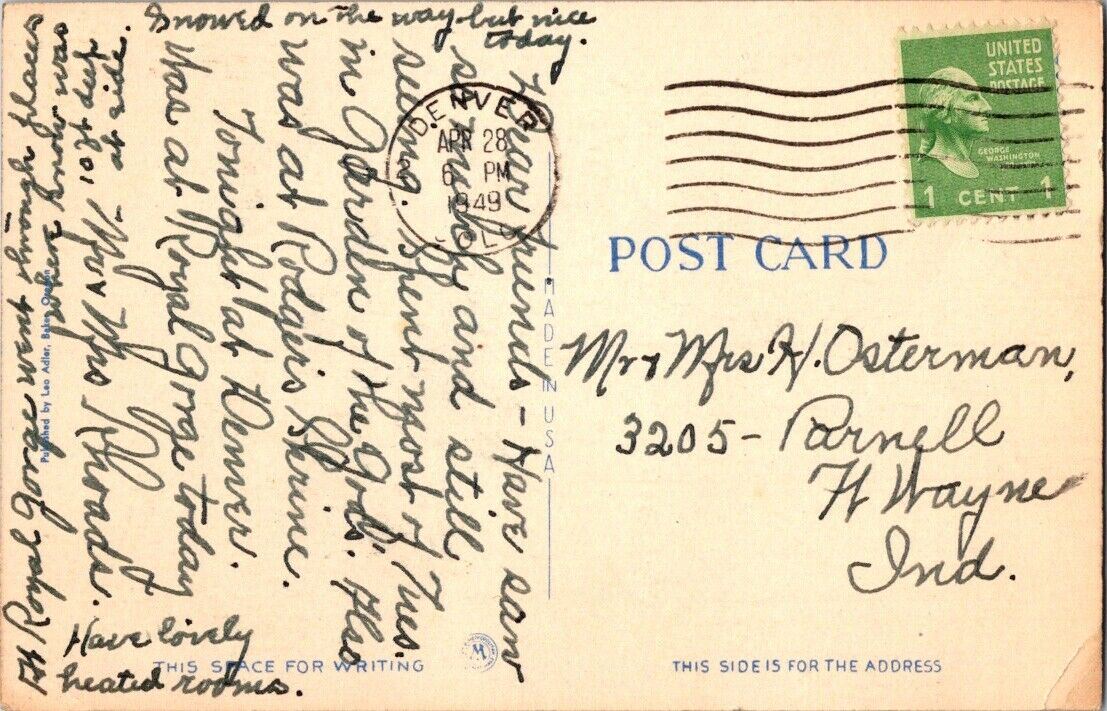 Snowed on the way but nice
today.
Dear Friends - Have saw
so much and still
seeing. Spent most of Tues.
in Garden of the Gods. Also
was at Rodgers Shrine.
Tonight at Denver.
Was at Royal Gorge today
Mr & Mrs Rhoads.
At Royal Gorge went through places
where snow was
10 ft deep
at side.
Have lovely
heated rooms.
Published by Leo Adler, Baker, Oregon
THIS SPACE FOR WRITING
W
MADE IN USA
DENVER
APR 28
6 PM
1949
COLO
UNITED
STATES
POSTAGE
GEORGE
WASHINGTON
1 CENT 1
POST CARD
Mr & Mrs H. Osterman,
3205 - Parnell
Ft Wayne
Ind.
THIS SIDE IS FOR THE ADDRESS